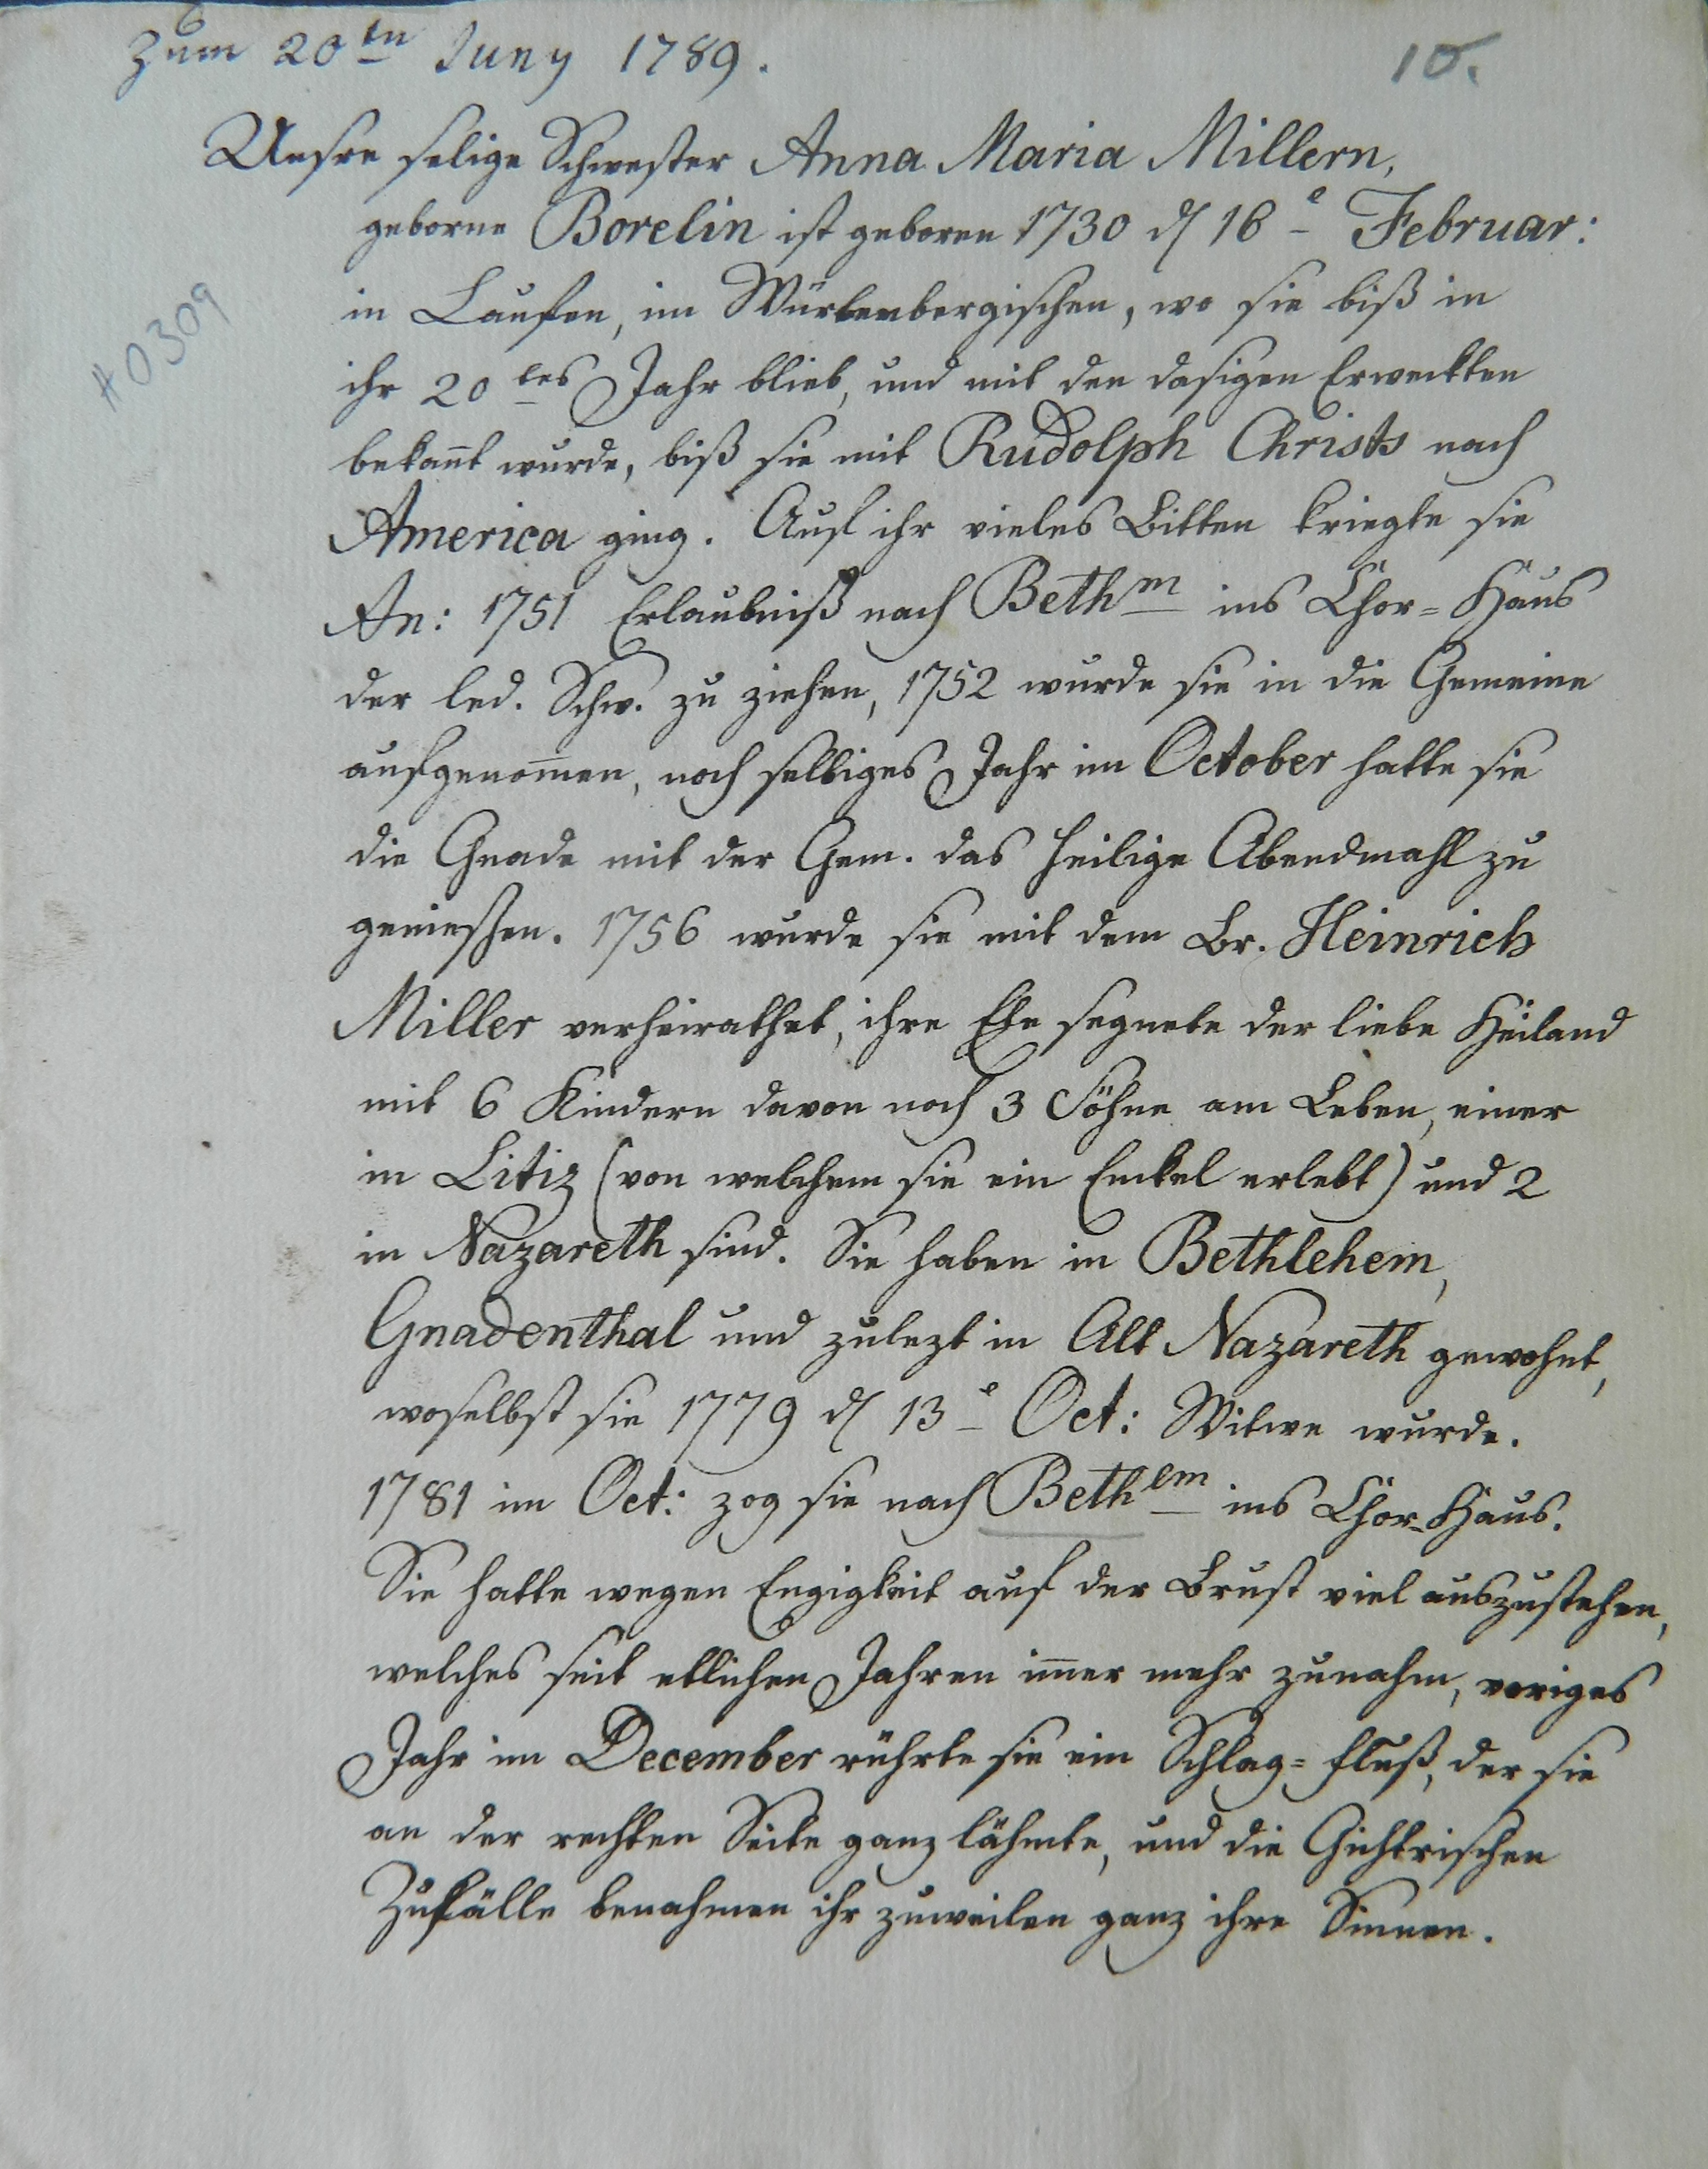 Zum 20tn Juny 1789.
10.
#0309
Unsre selige Schwester Anna Maria Millern,
geborne Borelin ist geboren 1730 d 16e Februar:
in Laufen, im Würtenbergischen, wo sie biß in
ihr 20tes Jahr blieb, und mit den dasigen Erweckten
bekan̄t wurde, biß sie mit Rudolph Christs nach
America ging. Auf ihr vieles Bitten kriegte sie
An: 1751 Erlaubniß nach Bethm ins Chor=Haus
der led. Schw. zu ziehen, 1752 wurde sie in die Gemeine
aufgenom̄en, noch selbiges Jahr im October hatte sie
die Gnade mit der Gem. das heilige Abendmahl zu
genießen. 1756 wurde sie mit dem Br. Heinrich
Miller verheirathet, ihre Ehe segnete der liebe Heiland
mit 6 Kindern davon noch 3 Söhne am Leben, einer
in Litiz (von welchem sie ein Enkel erlebt) und 2
in Nazareth sind. Sie haben in Bethlehem,
Gnadenthal und zulezt in Alt Nazareth gewohnt,
woselbst sie 1779 d 13e Oct: Witwe wurde.
1781 im Oct: zog sie nach Bethem ins Chor=Haus.
Sie hatte wegen Engigkeit auf der Brust viel auszustehen,
welches seit etlichen Jahren im̄er mehr zunahm, voriges
Jahr im December rührte sie ein Schlag=fluß, der sie
an der rechten Seite ganz lähmte, und die Gichtrischen
Zufälle benahmen ihr zuweilen ganz ihre Sinnen.